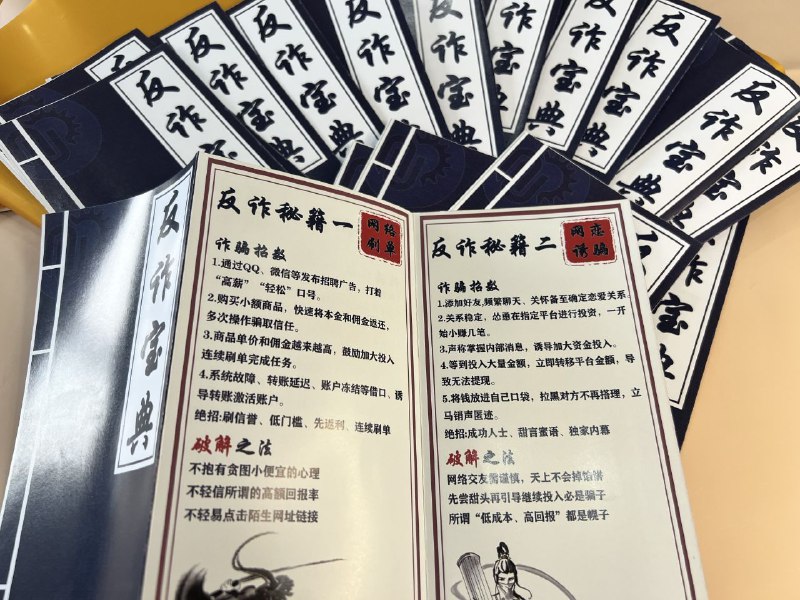 反诈宝典
反诈秘籍一
网络
刷单
诈骗招数
1.通过QQ、微信等发布招聘广告，打着
“高薪”“轻松”口号。
2.购买小额商品，快速将本金和佣金返还，
多次操作骗取信任。
3.商品单价和佣金越来越高，鼓励加大投入
连续刷单完成任务。
4.系统故障、转账延迟、账户冻结等借口、诱
导转账激活账户。
绝招:刷信誉、低门槛、先返利、连续刷单
破解之法
不抱有贪图小便宜的心理
不轻信所谓的高额回报率
不轻易点击陌生网址链接
反诈秘籍二
网恋
诱骗
诈骗招数
1.添加好友,频繁聊天、关怀备至确定恋爱关系.
2.关系稳定，怂恿在指定平台进行投资，一开
始小赚几笔。
3.声称掌握内部消息，诱导加大资金投入。
4.等到投入大量金额，立即转移平台金额，导
致无法提现。
5.将钱放进自己口袋，拉黑对方不再搭理，立
马销声匿迹。
绝招:成功人士、甜言蜜语、独家内幕
破解之法
网络交友需谨慎，天上不会掉馅饼
先尝甜头再引导继续投入必是骗子
所谓“低成本、高回报”都是幌子
反诈宝典
反诈宝
反诈宝
反诈宝典
反诈宝典
反诈宝典
诈宝
诈宝典
反诈宝典
反诈宝典